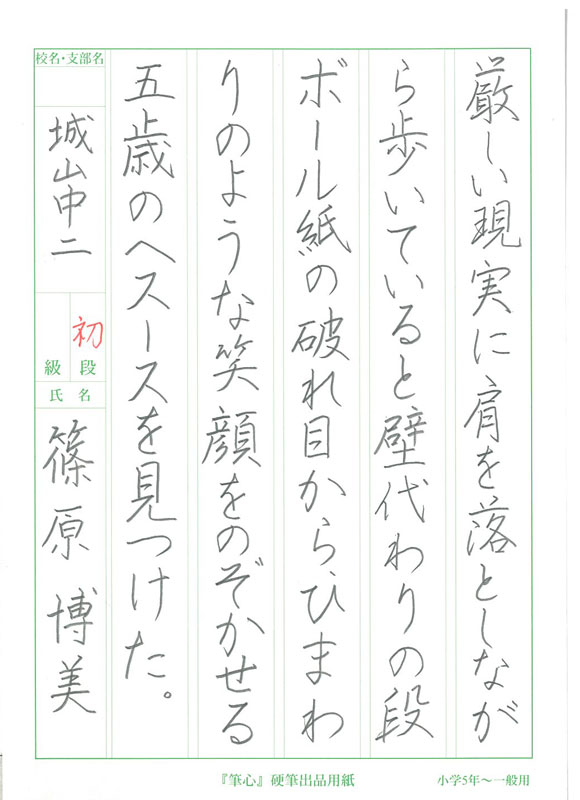 厳しい現実に肩を落としなが
ら歩いていると壁代わりの段
ボール紙の破れ目からひまわ
りのような笑顔をのぞかせる
五歳のヘスースを見つけた。
校名・支部名
城山中二
初
級 段
氏 名
篠原 博美
『筆心』硬筆出品用紙
小学5年〜一般用